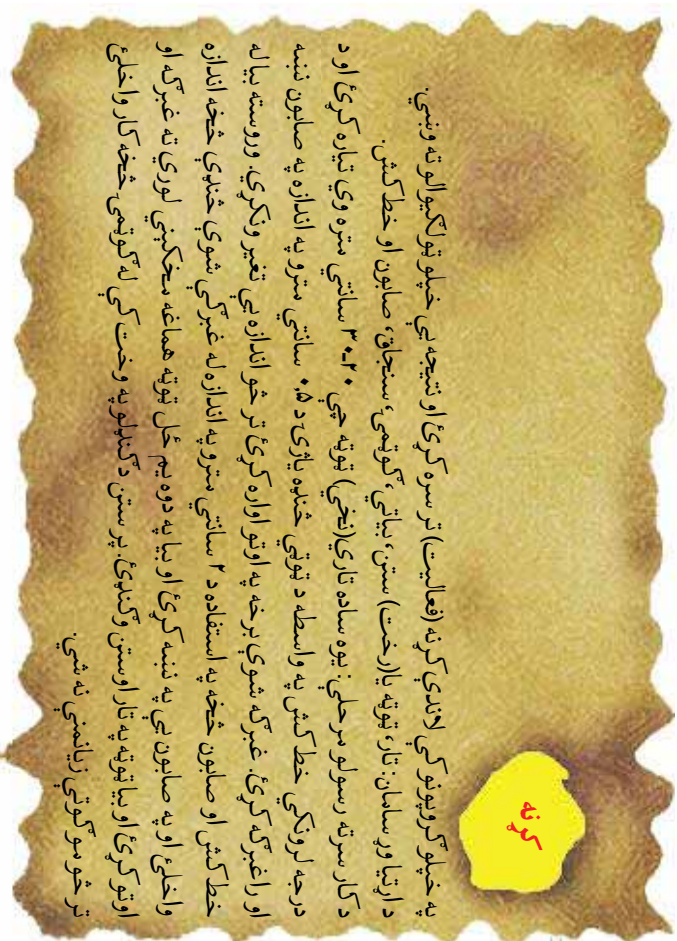 کړنه
په خپلو ګروپونو کې لاندې کړنه (فعالیت) تر سره کړئ او نتیجه یې خپلو ټولګیوالو ته وښیي.
د اړتیا وړ سامان: تار، ټوټه یا(رخت) ستن، بیاتي، ګوتمۍ، سنجاق، صابون او خط کش.
د کار سرته رسولو مرحلې: یوه ساده تاري(نخي) ټوټه چې ۲۰-۳۰ سانتي متره وي تیاره کړئ او د
درجه لرونکي خط کش په واسطه د ټوټې څنډه یاژۍ د ۰،۵ سانتي مترو په اندازه په صابون نښه
او راغبرګه کړئ. غبرګه شوې برخه په اوتو اواره کړئ تر څو اندازه یې تغیر ونکړي. وروسته بیا له
خط کش او صابون څخه په استفاده د ۲ سانتي مترو په اندازه له غبرګې شوې څنډې څخه اندازه
واخلئ او په صابون یې په نښه کړئ او بیا په دوه یم ځل ټوټه هماغه مخکیني لوري ته غبرګه او
اوتو کړئ او بیا ټوټه په تار اوستن وګنډئ. پر ستن د ګنډلو په وخت کې له ګوتمۍ څخه کار واخلئ
تر څو مو ګوتې زیانمنې نه شي.